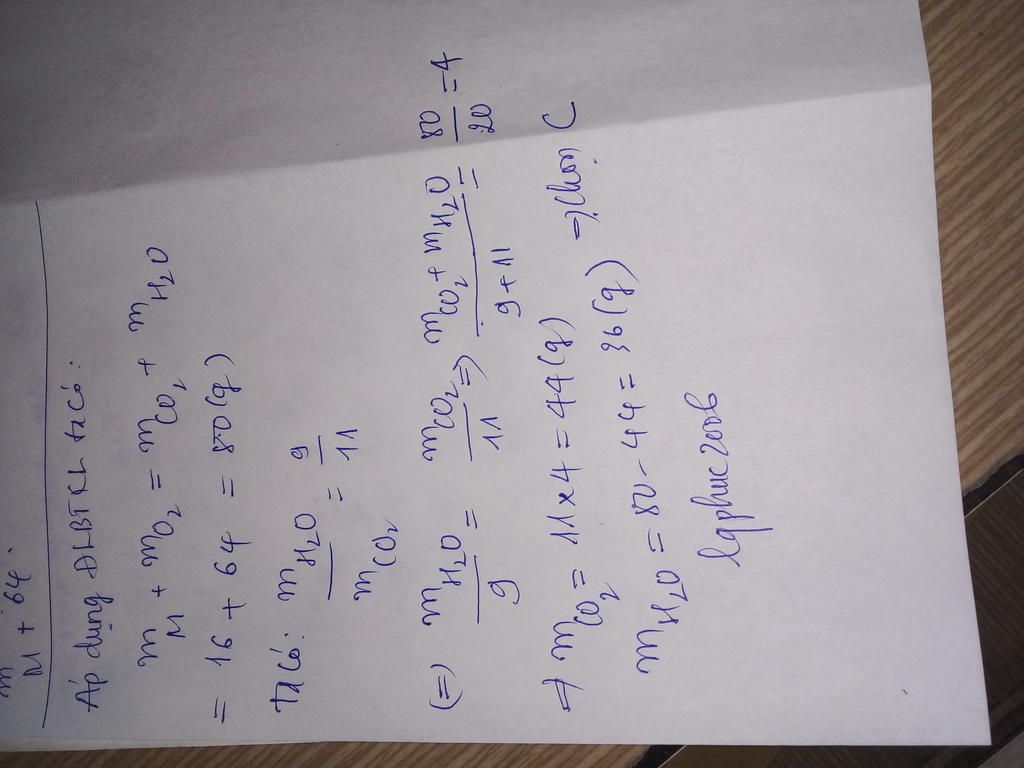 m_M + 64.
Áp dụng ĐLBTKL ta có:
m_M + m_O₂ = m_CO₂ + m_H₂O
= 16 + 64 = 80(g)
Ta có: m_H₂O / m_CO₂ = 9/11
(=) m_H₂O / 9 = m_CO₂ / 11 =) (m_CO₂ + m_H₂O) / (9+11) = 80/20 = 4
=) m_CO₂ = 11x4 = 44(g) =) Chọn C
m_H₂O = 80 - 44 = 36(g)
lqphuc2006